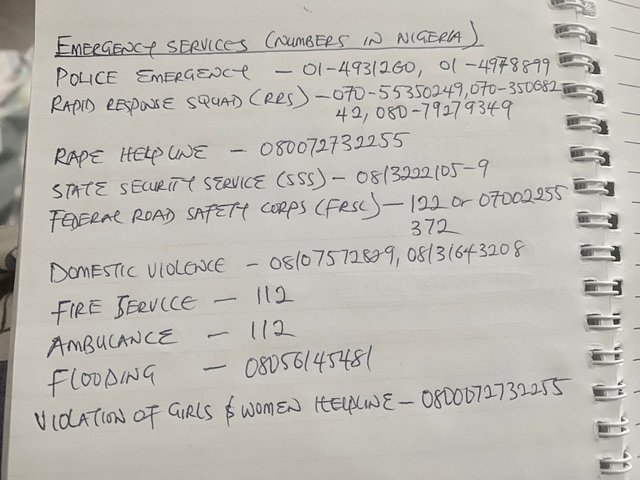 EMERGENCY SERVICES (NUMBERS IN NIGERIA)
POLICE EMERGENCY — 01-4931260, 01-4978899
RAPID RESPONSE SQUAD (RRS) — 070-55350249, 070-350682
42, 080-79279349
RAPE HELPLINE — 080072732255
STATE SECURITY SERVICE (SSS) — 08132222105-9
FEDERAL ROAD SAFETY CORPS (FRSC) — 122 or 07002255
372
DOMESTIC VIOLENCE — 08107572829, 08131643208
FIRE SERVICE — 112
AMBULANCE — 112
FLOODING — 08056145481
VIOLATION OF GIRLS & WOMEN HELPLINE — 0800072732255